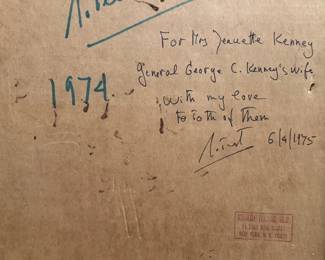 1974
For Mrs Jeanette Kenney
General George C. Kenney's wife
with my love
to both of them
6/4/1975
NEW YORK, N.Y.